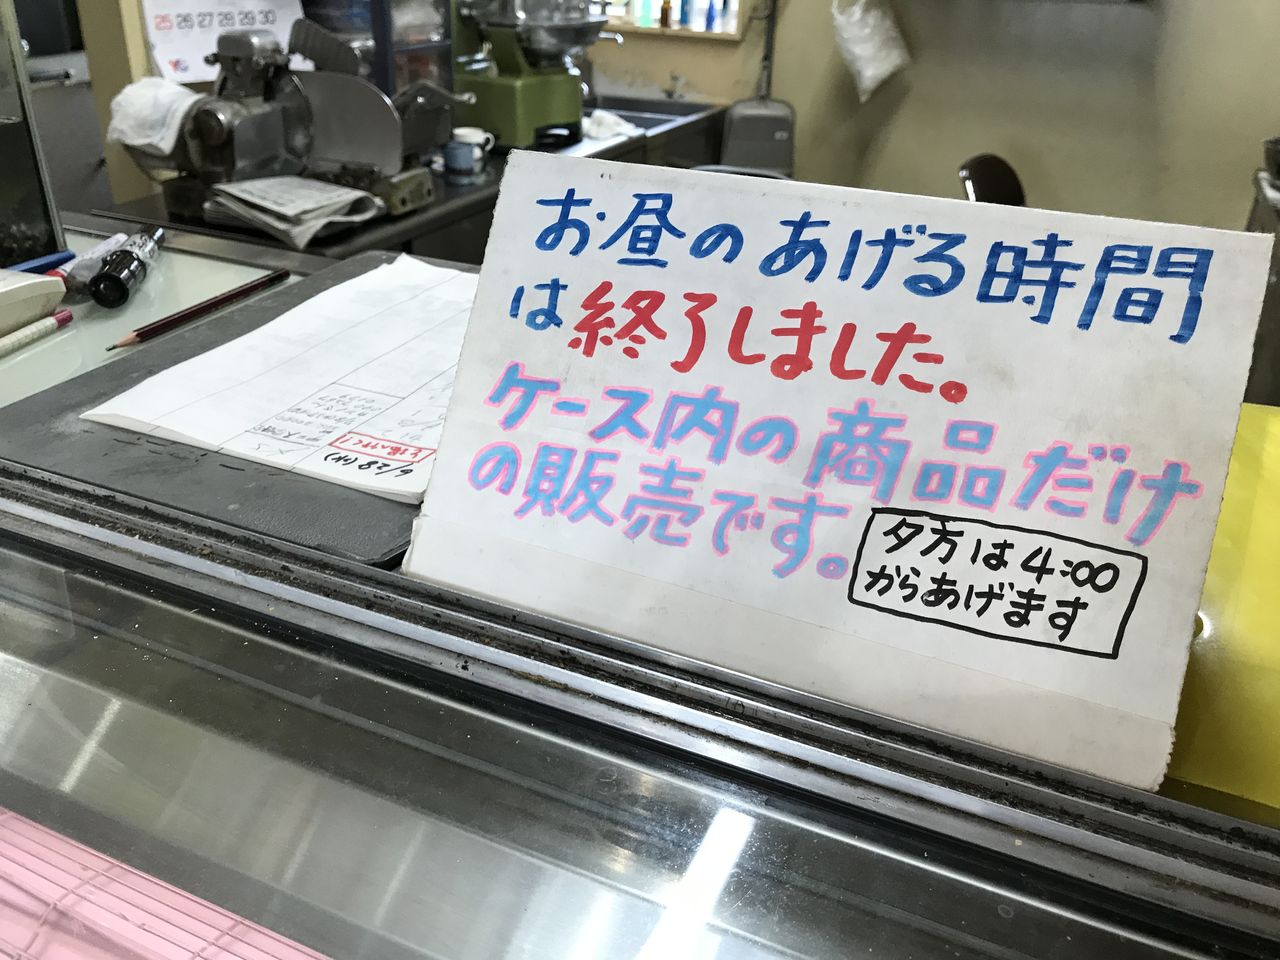 25 26 27 28 29 30
お昼のあげる時間
は終了しました。
ケース内の商品だけ
の販売です。
夕方は4:00
からあげます
6/28(水)